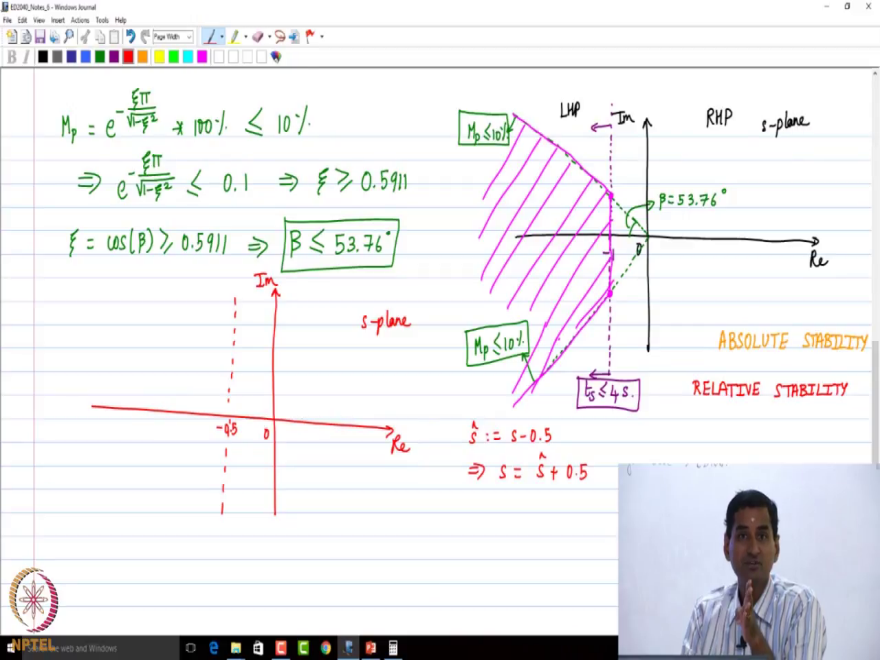 ED2040_Notes_6 - Windows Journal
File Edit View Insert Actions Tools Help
Page Width
B I
Mp = e^(-ξπ/√(1-ξ²)) * 100% ≤ 10%
⇒ e^(-ξπ/√(1-ξ²)) ≤ 0.1 ⇒ ξ ≥ 0.5911
ξ = cos(β) ≥ 0.5911 ⇒ β ≤ 53.76°
Im
s-plane
-0.5
0
Re
LHP
Im
RHP
s-plane
Mp ≤ 10%
β = 53.76°
0
Re
Mp ≤ 10%
ts ≤ 4 s.
ABSOLUTE STABILITY
RELATIVE STABILITY
ŝ := s - 0.5
⇒ s = ŝ + 0.5
NPTEL
the web and Windows